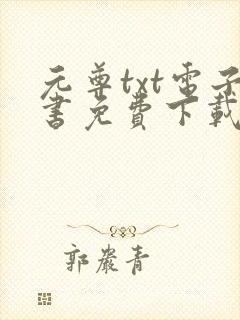 元尊txt电子
書免費下載
郭嚴青